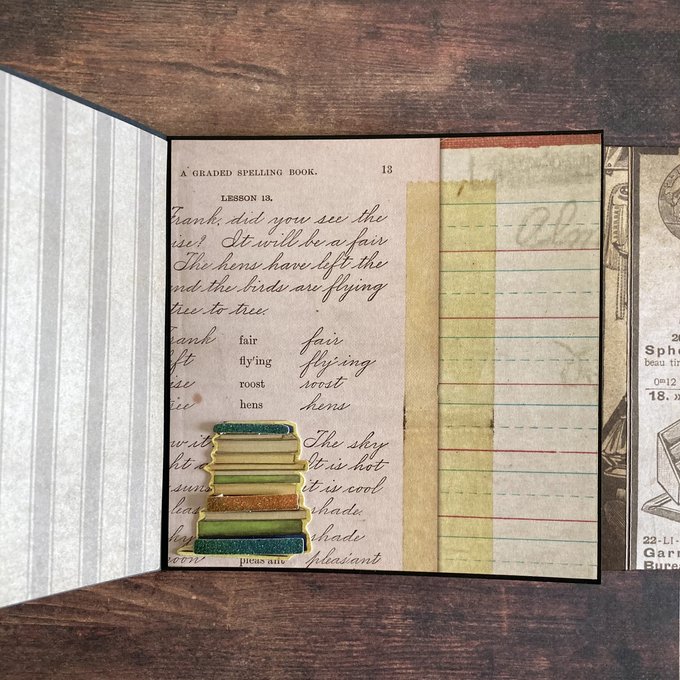 A GRADED SPELLING BOOK. 13
LESSON 13.
Frank, did you see the
ise? It will be a fair
The hens have left the
nd the birds are flying
tree to tree.
rank fair fair
ft fly'ing fly'ing
ise roost roost
ree hens hens
w it The sky
ht It is hot
suns it is cool
shade.
ky shade
noon pleas'ant pleas'ant
Alm
20
Sphe
beau tin
0m12
18. »
22-LI-
Garn
Burea